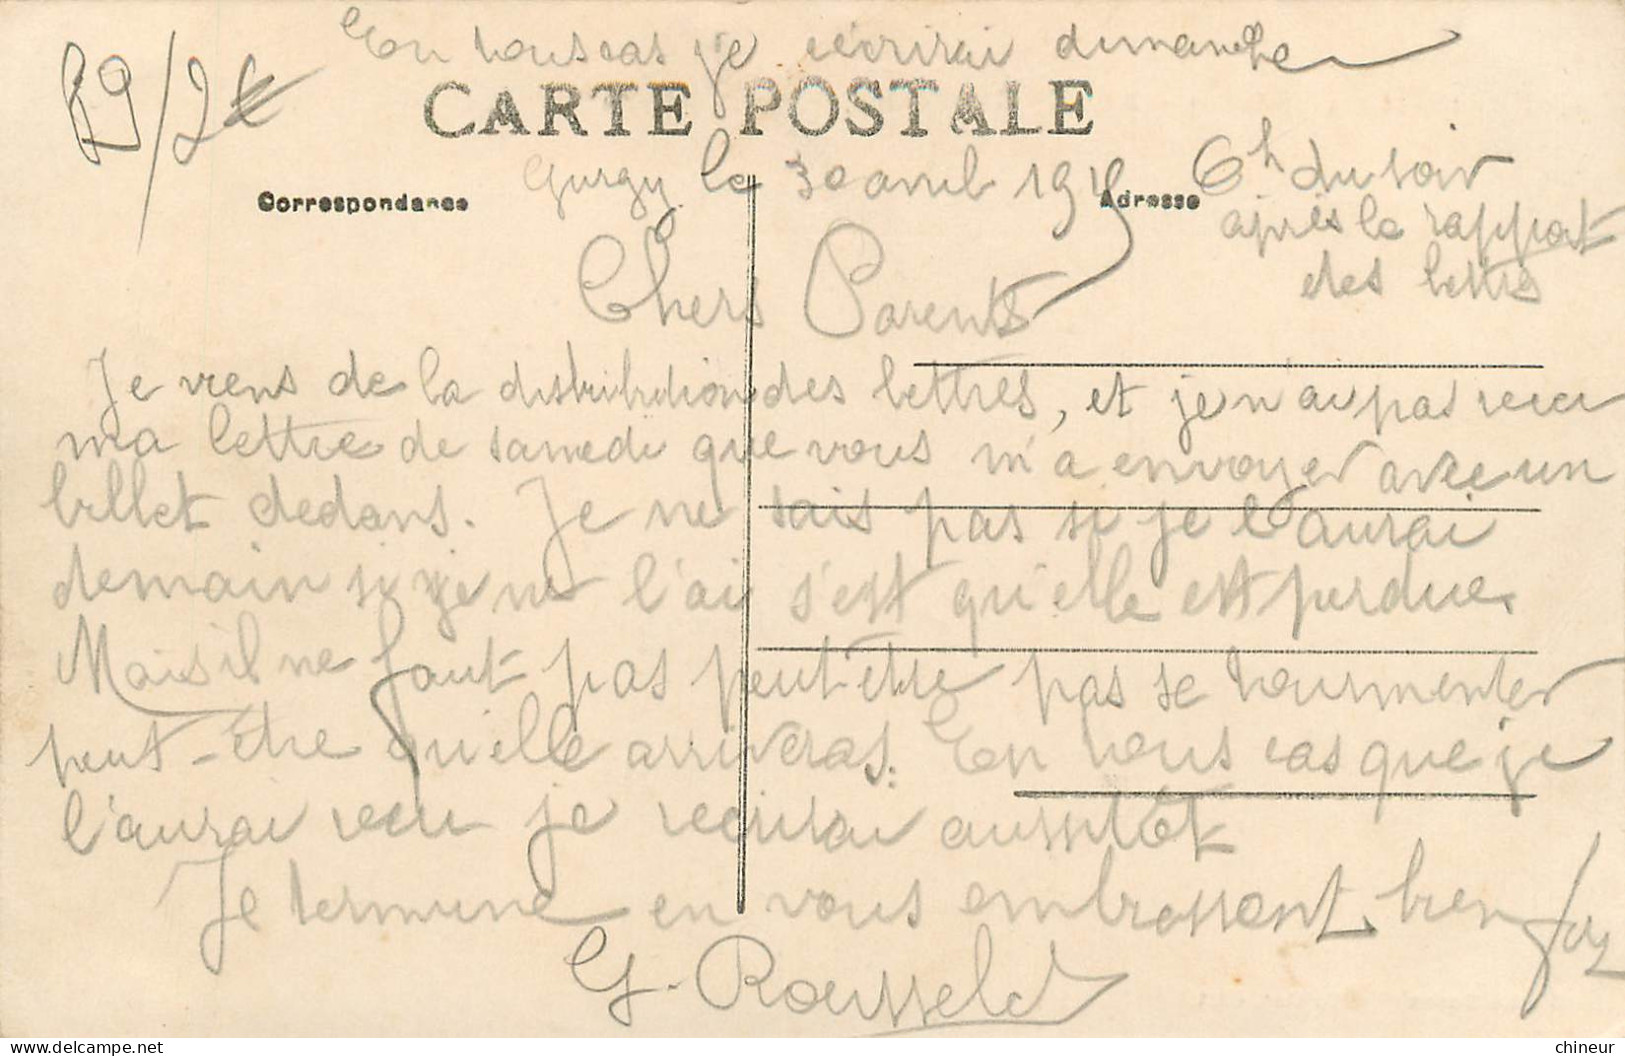 En tous cas je récrirai dimanche
89/2€
CARTE POSTALE
Gurgy le 30 avril 1915 6h du soir
Correspondance
Adresse
après le rapport
des lettres
Chers Parents
Je viens de la distribution des lettres, et je n'ai pas recu
ma lettre de samedi que vous m'a envoyer avec un
billet dedans. Je ne sais pas si je l'aurai
demain si je ne l'ai s'est qu'elle est perdue.
Mais il ne faut pas peut-être pas se tourmenter
peut-être qu'elle arriveras. En tous cas que je
l'aurai recu je recrirai aussitôt
Je termine en vous embrassant bien fort
G. Roussel
chineur